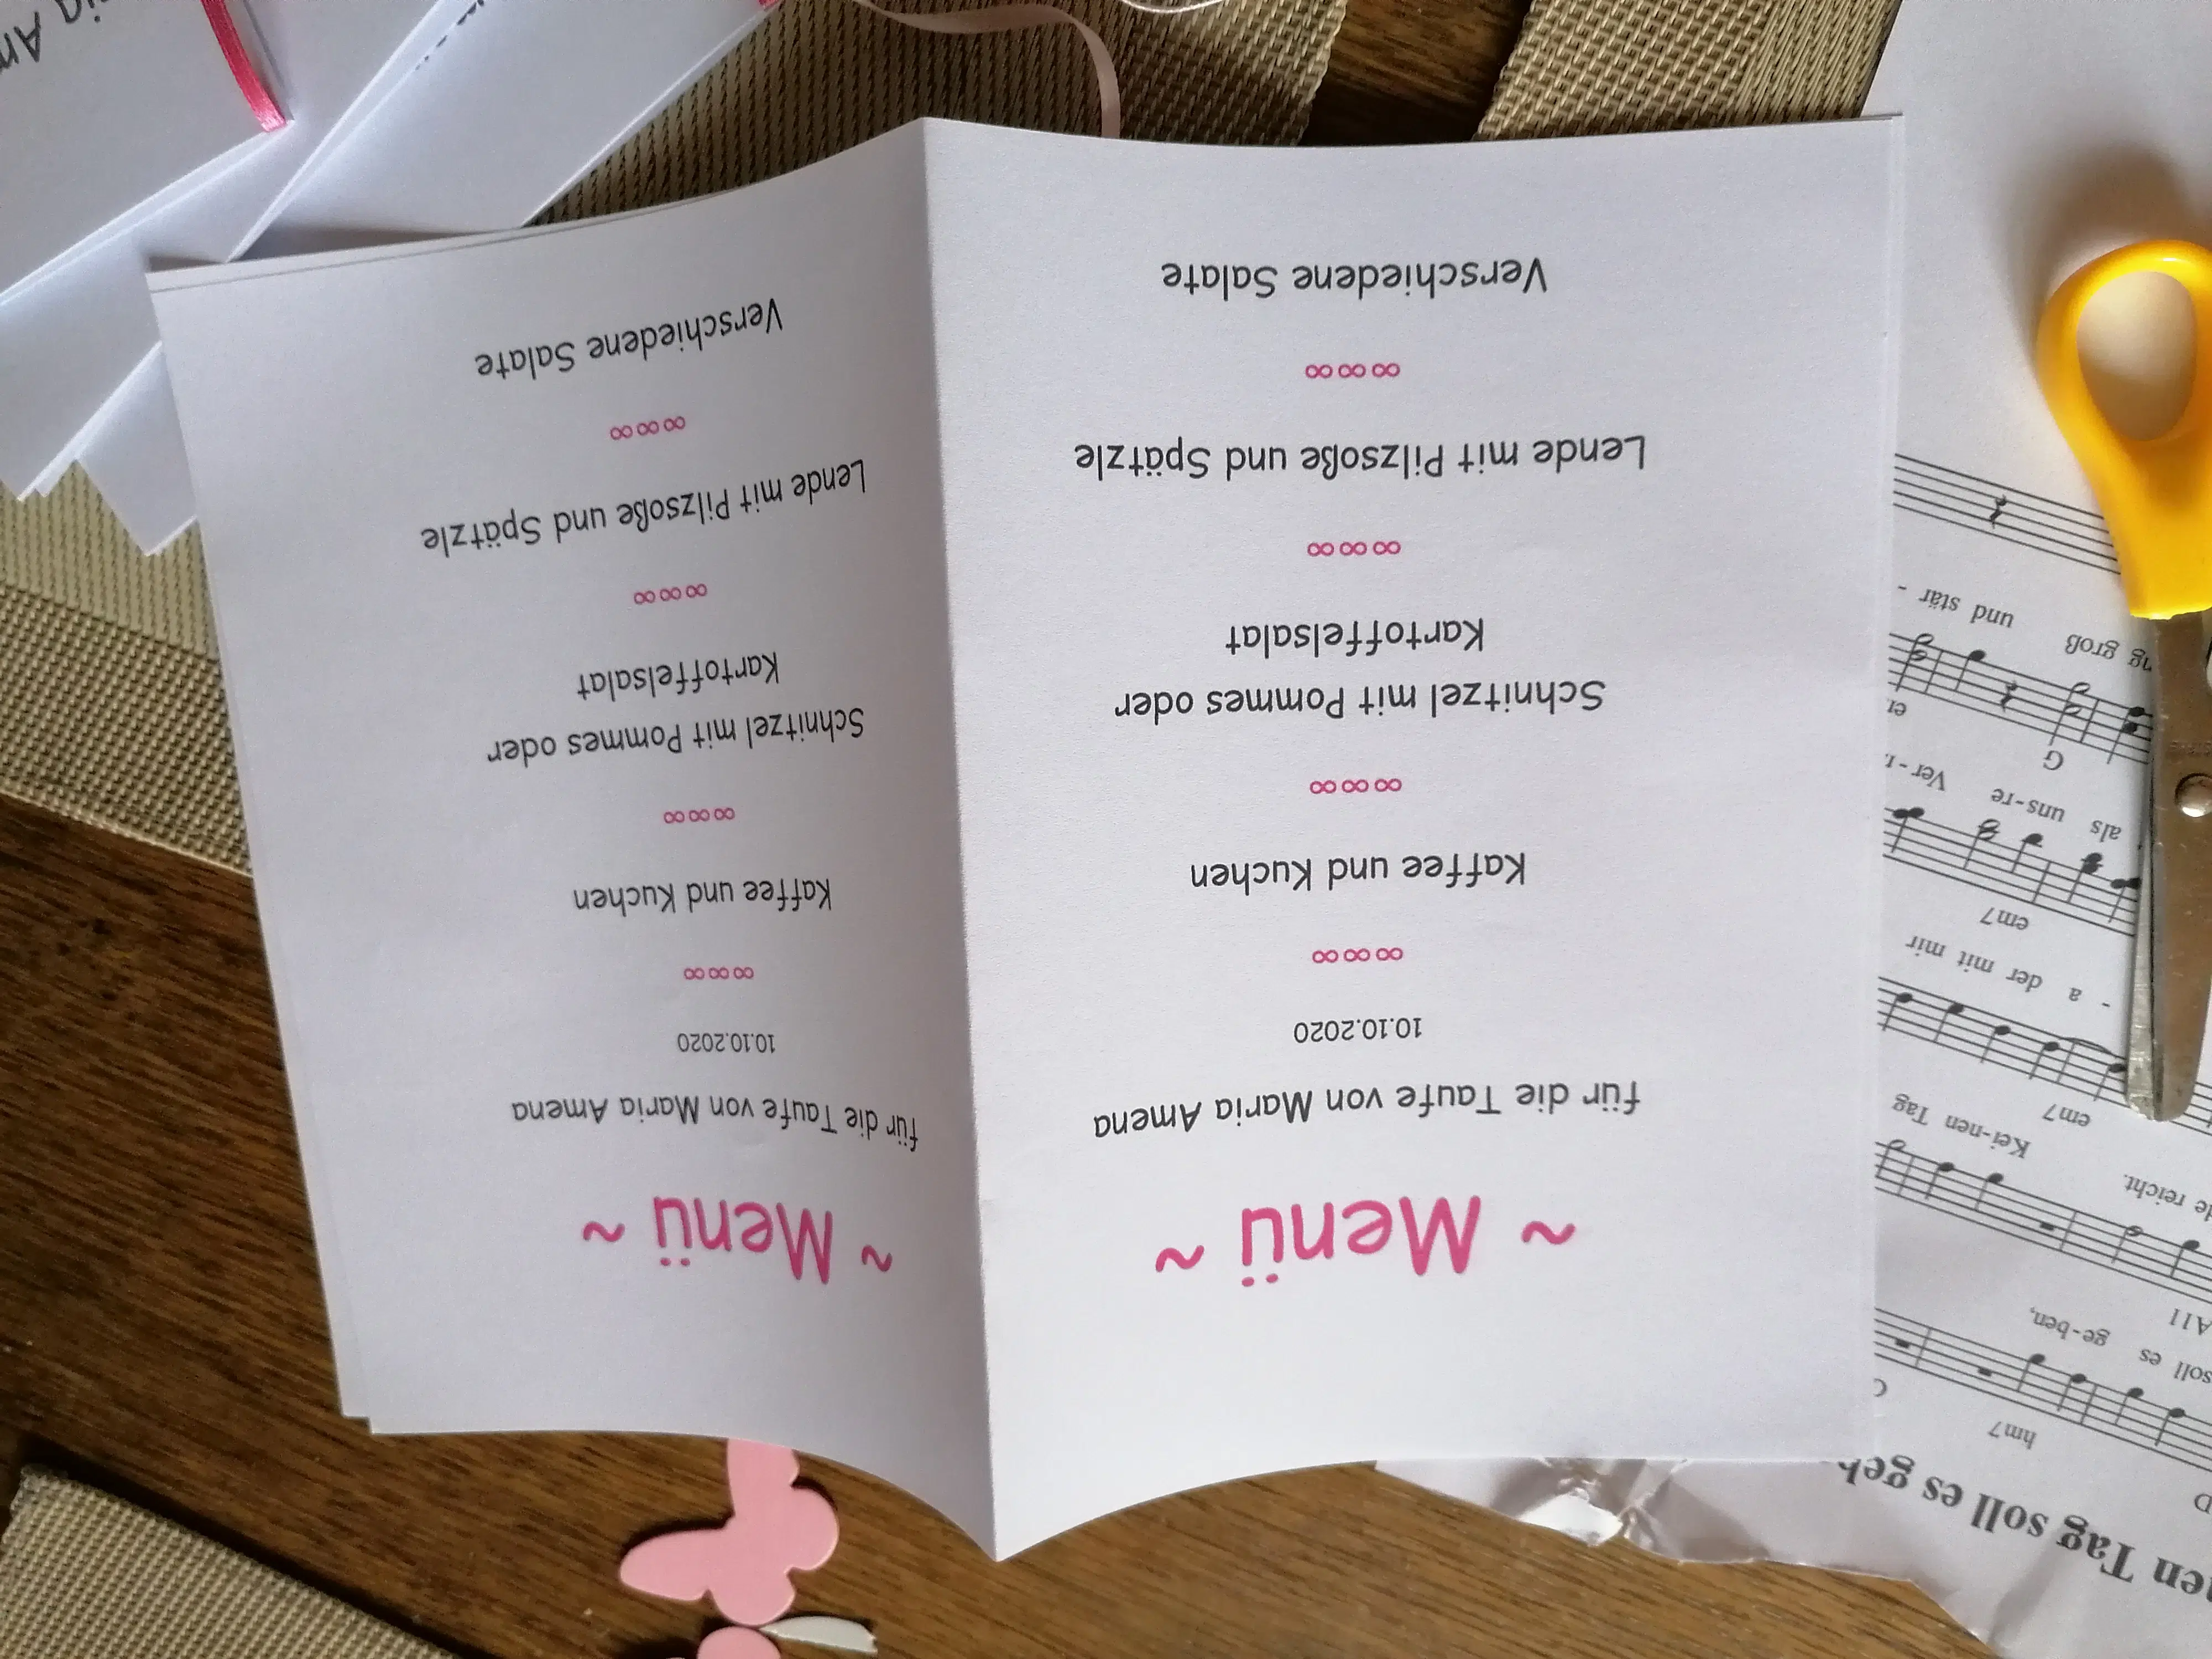 ~ Menü ~
für die Taufe von Maria Amena
10.10.2020
∞∞∞
Kaffee und Kuchen
∞∞∞
Schnitzel mit Pommes oder
Kartoffelsalat
∞∞∞
Lende mit Pilzsoße und Spätzle
∞∞∞
Verschiedene Salate
~ Menü ~
für die Taufe von Maria Amena
10.10.2020
∞∞∞
Kaffee und Kuchen
∞∞∞
Schnitzel mit Pommes oder
Kartoffelsalat
∞∞∞
Lende mit Pilzsoße und Spätzle
∞∞∞
Verschiedene Salate
Tag soll es
hm7
soll es ge-ben,
A11
reicht. Kei-nen Tag
em7
a der mit mir
em7
als uns-re Ver-
G
groß und stär -